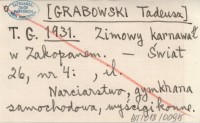 [GRABOWSKI Tadeusz]
T. G. 1931. Zimowy karnawał
w Zakopanem. — Świat
26, nr 4: , il.
Narciarstwo, gymkhana
samochodowa, wyścigi konne.